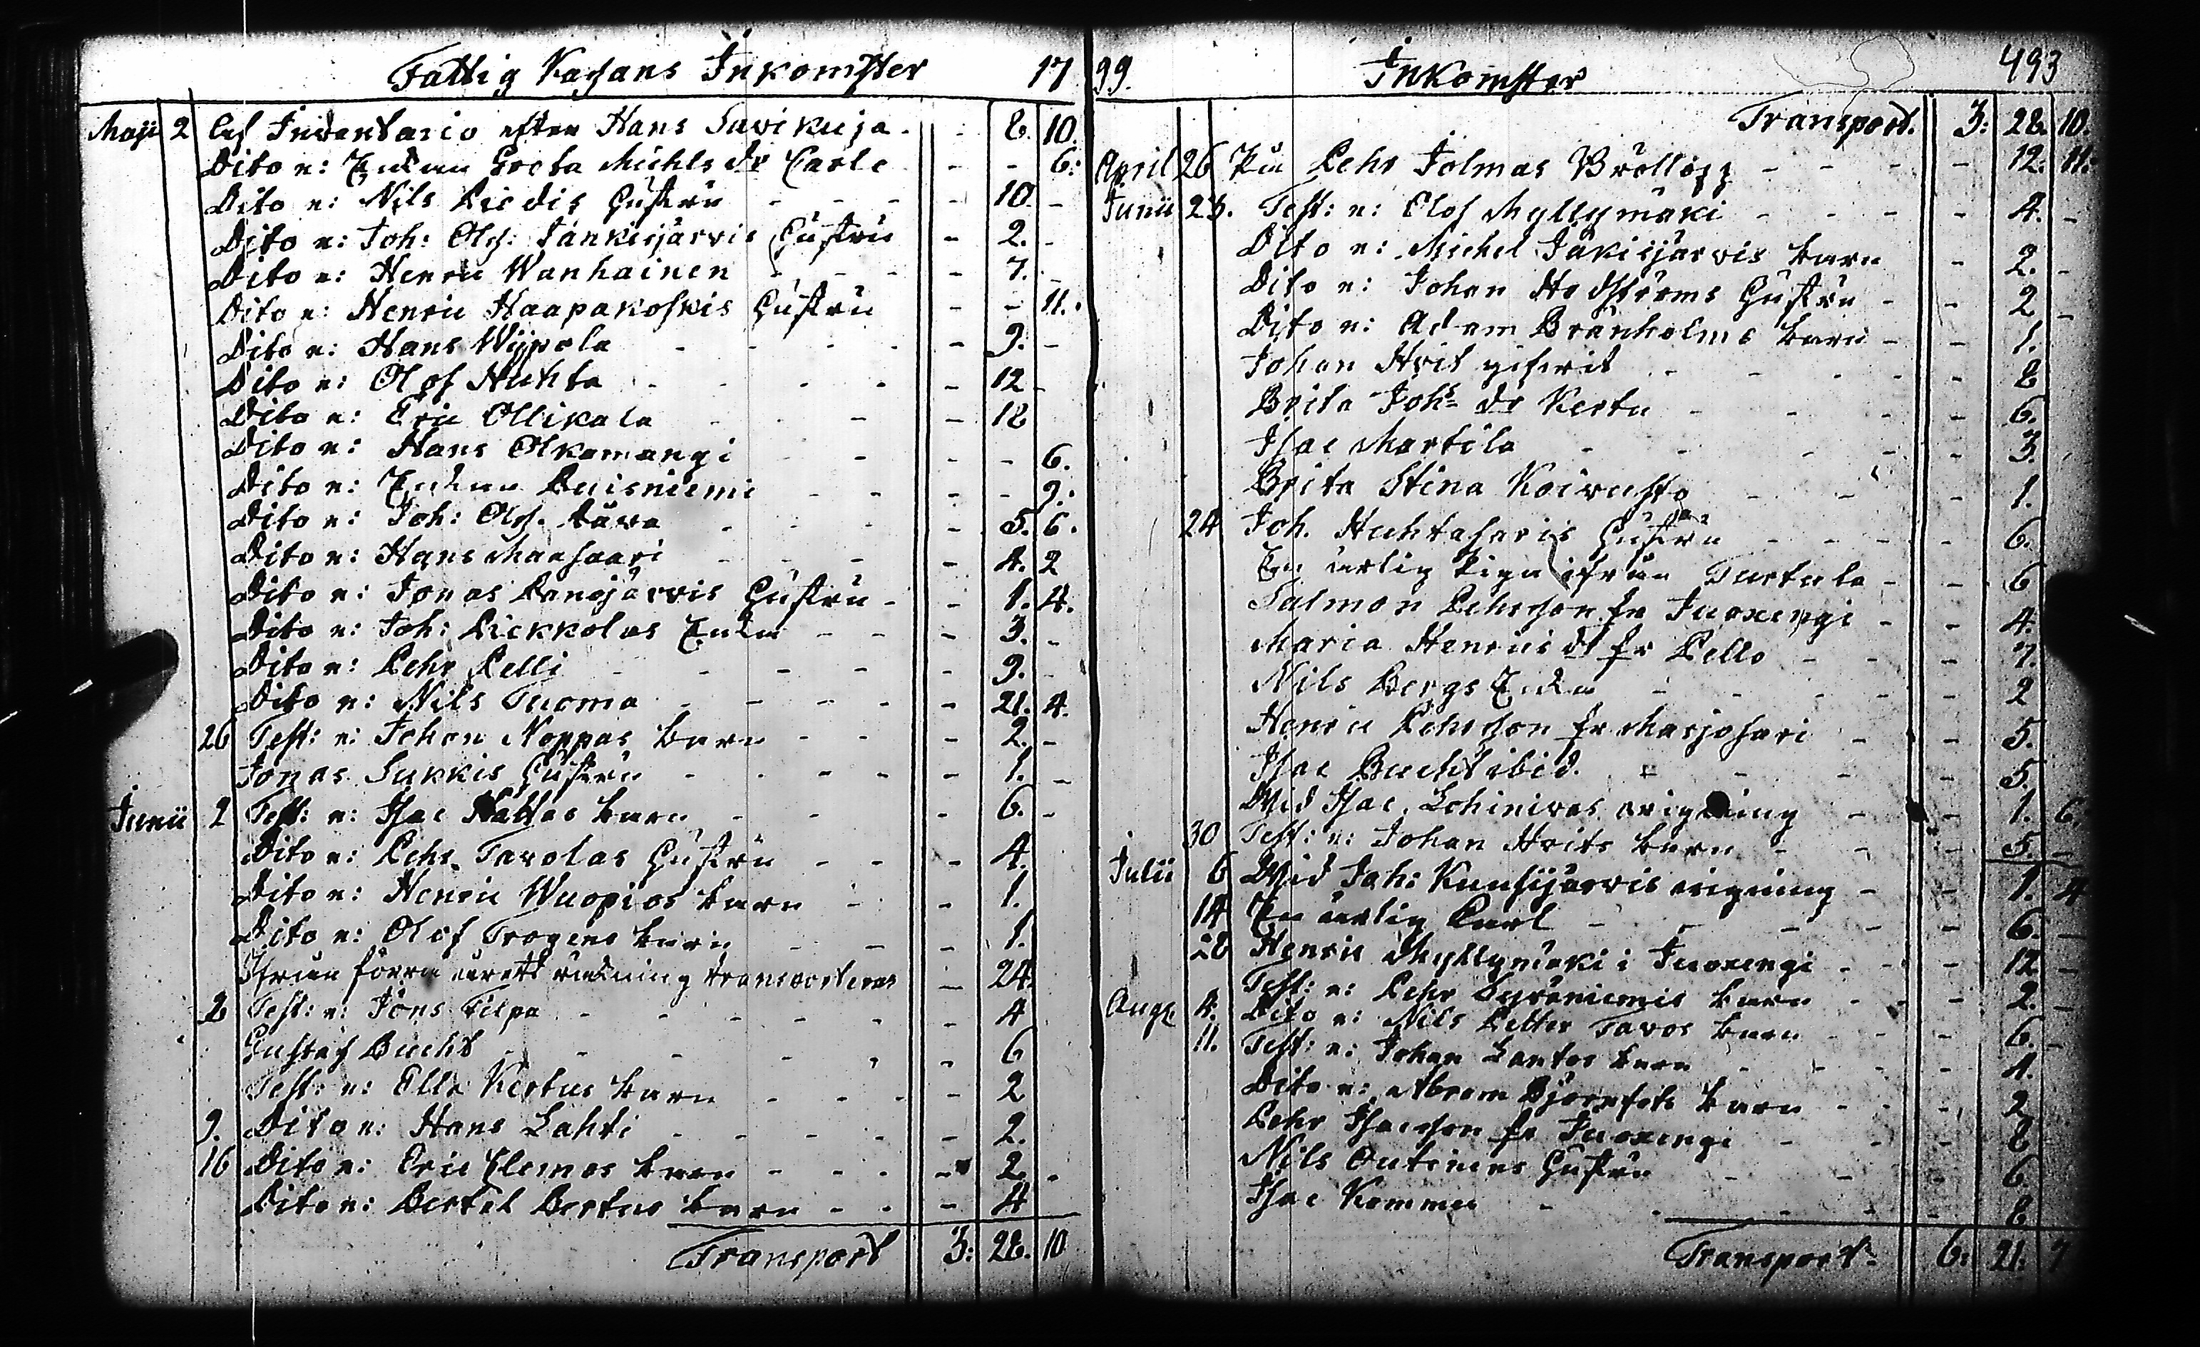 Fattig Kassans Inkomster 17
Maji 2 Af Inventario efter Hans Savikuja - - 8. 10.
Dito e: Enkan Greta Michels dr Carle - - 6:
Dito e: Nils Piedis Hustru - - - - 10. -
Dito e: Joh: Ols: Jänkisjärvis Hustru - 2. -
Dito e: Henric Wanhainen - - - - 7. -
Dito e: Henric Haapakoskis Hustru - - 11.
Dito e: Hans Wijpola - - - - - 9. -
Dito e: Olof Huhta - - - - - 12 -
Dito e: Eric Ollikala - - - 18
Dito e: Hans Olkamangi - - - 6.
Dito e: Enkan Puisniemi - - - - 9.
Dito e: Joh: Ols. - - - 5. 6.
Dito e: Hans Maasaari - - - - 4. 2
Dito e: Jonas Panojärvis Hustru - - 1. 4.
Dito e: Joh: Pickkolas Enka - - - 3. -
Dito e: Pehr Pelli - - - - 9. -
Dito e: Nils Tuoma - - - - - 21. 4.
26 Test: e: Johan Noppas barn - - - 2. -
Jonas Sukkis Hustru - - - - - 1. -
Junii 2 Test: e: Isac barn - - - 6. -
Dito e: Pehr Tavolas Hustru - - - 4.
Dito e: Henric Wuopios barn - - 1.
Dito e: Olof Trogens barn - - - 1.
Ifrån förra årets räkning transporteras - 24.
2 Test: e: Jöns Filpa - - - - - 4
Gustaf Bucht - - - - 6
Test: e: Ella Kertus barn - - - - 2
9. Dito e: Hans Lahti - - - - - 2.
16 Dito e: Eric Clemos barn - - - - 2. -
Dito e: Bertil Bertus barn - - - 4
Transport 3: 28. 10
99. Inkomster 493
Transport. 3: 28. 10.
April 26 På Pehr Jolmas Bröllopp - - - - 12. 11.
Junii 23. Test: e: Olof Myllymäki - - - - 4. -
Dito e: Michel Jäkisjärvis barn - 2. -
Dito e: Johan Hedströms Hustru - - 2 -
Dito e: Adam Bränholms barn - - 1.
Johan Hvit gifvit - - - - 8
Brita Johs dr Kertu - - - - 6.
Isac Martila - - - - 3.
Brita Stina Koivusto - - - - 1.
24 Joh. Huhtasaris Hustru - - - - 6.
En ärlig piga ifrån Turtula - - 6
Salmon Pehrsson fr Juoxengi - - 4.
Maria Henrics dr fr Pello - - - 7.
Nils Bergs Enka - - - - 2
Henric Pehrsson fr Marjosari - - 5.
Isac Bucht ibid. - - - - 5.
Vid Isac Lohinivas - - 1. 6.
30 Test: e: Johan Hvits barn - - - 5. -
Julii 6 Vid Joh: Kuusijärvis vigning - - 1. 4
14 En ärlig Karl - - - - - 6. -
28 Henric Myllymäki i Juoxengi - - - 12 -
Test: e: Pehr barn - - - 2. -
Augt. 4. Dito e: Nils Petter Tavos barn - - - 6. -
11. Test: e: Johan Lantos barn - - - 4.
Dito e: Abram barn - - - 2
Pehr Isacsson fr Juoxengi - - - 8
Nils Outinens Hustru - - - 6
Isac Kommes - - - - - 8
Transport. 6: 21: 7